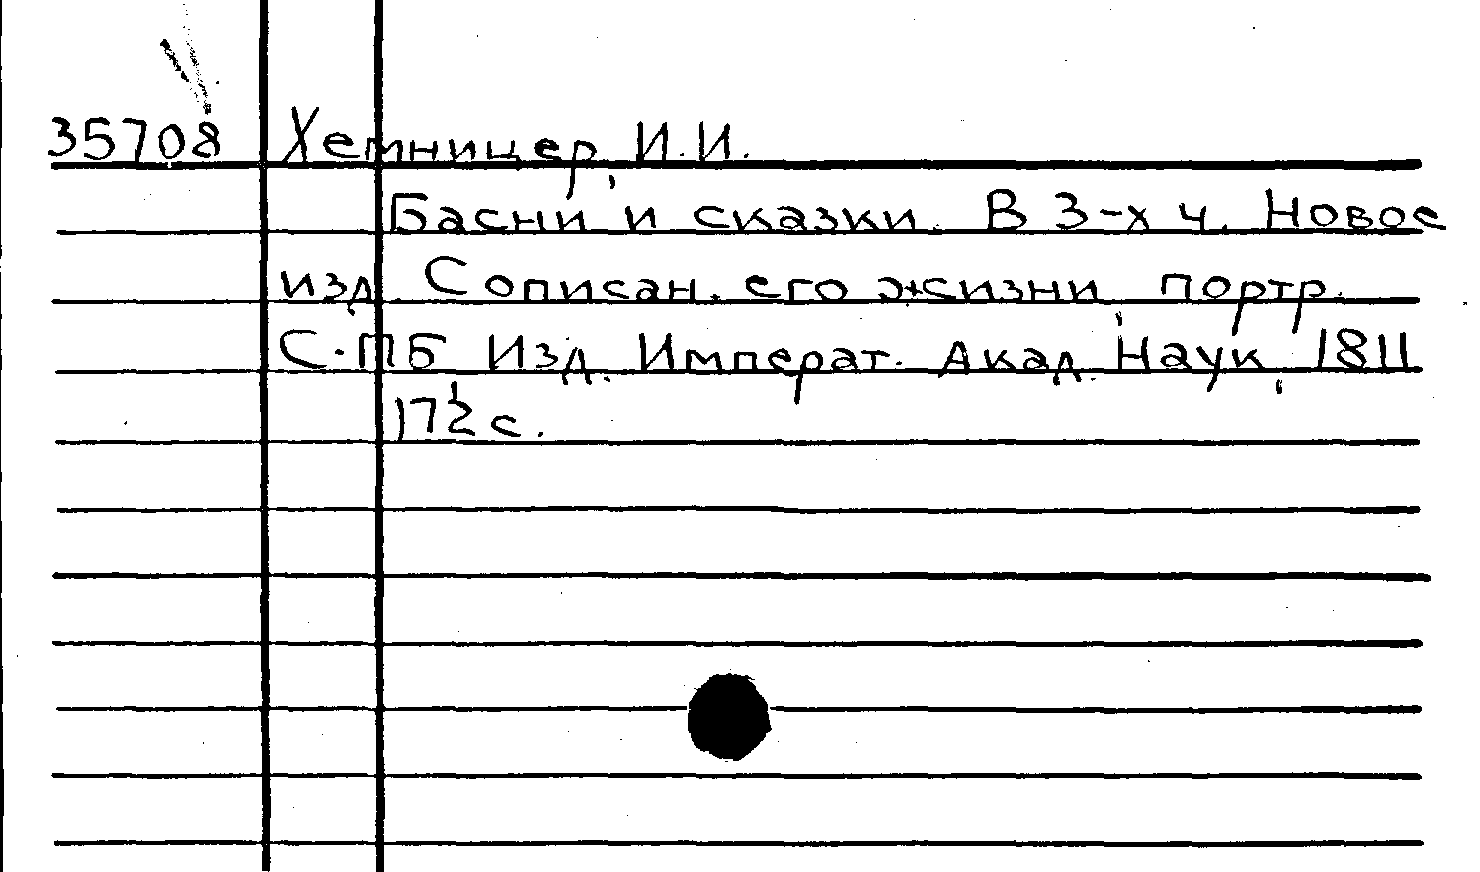 35708 Хемницер, И.И.
Басни и сказки. В 3-х ч. Новое
изд. С описан. его жизни, портр.
С.ПБ Изд. Императ. Акад. Наук, 1811
172 с.